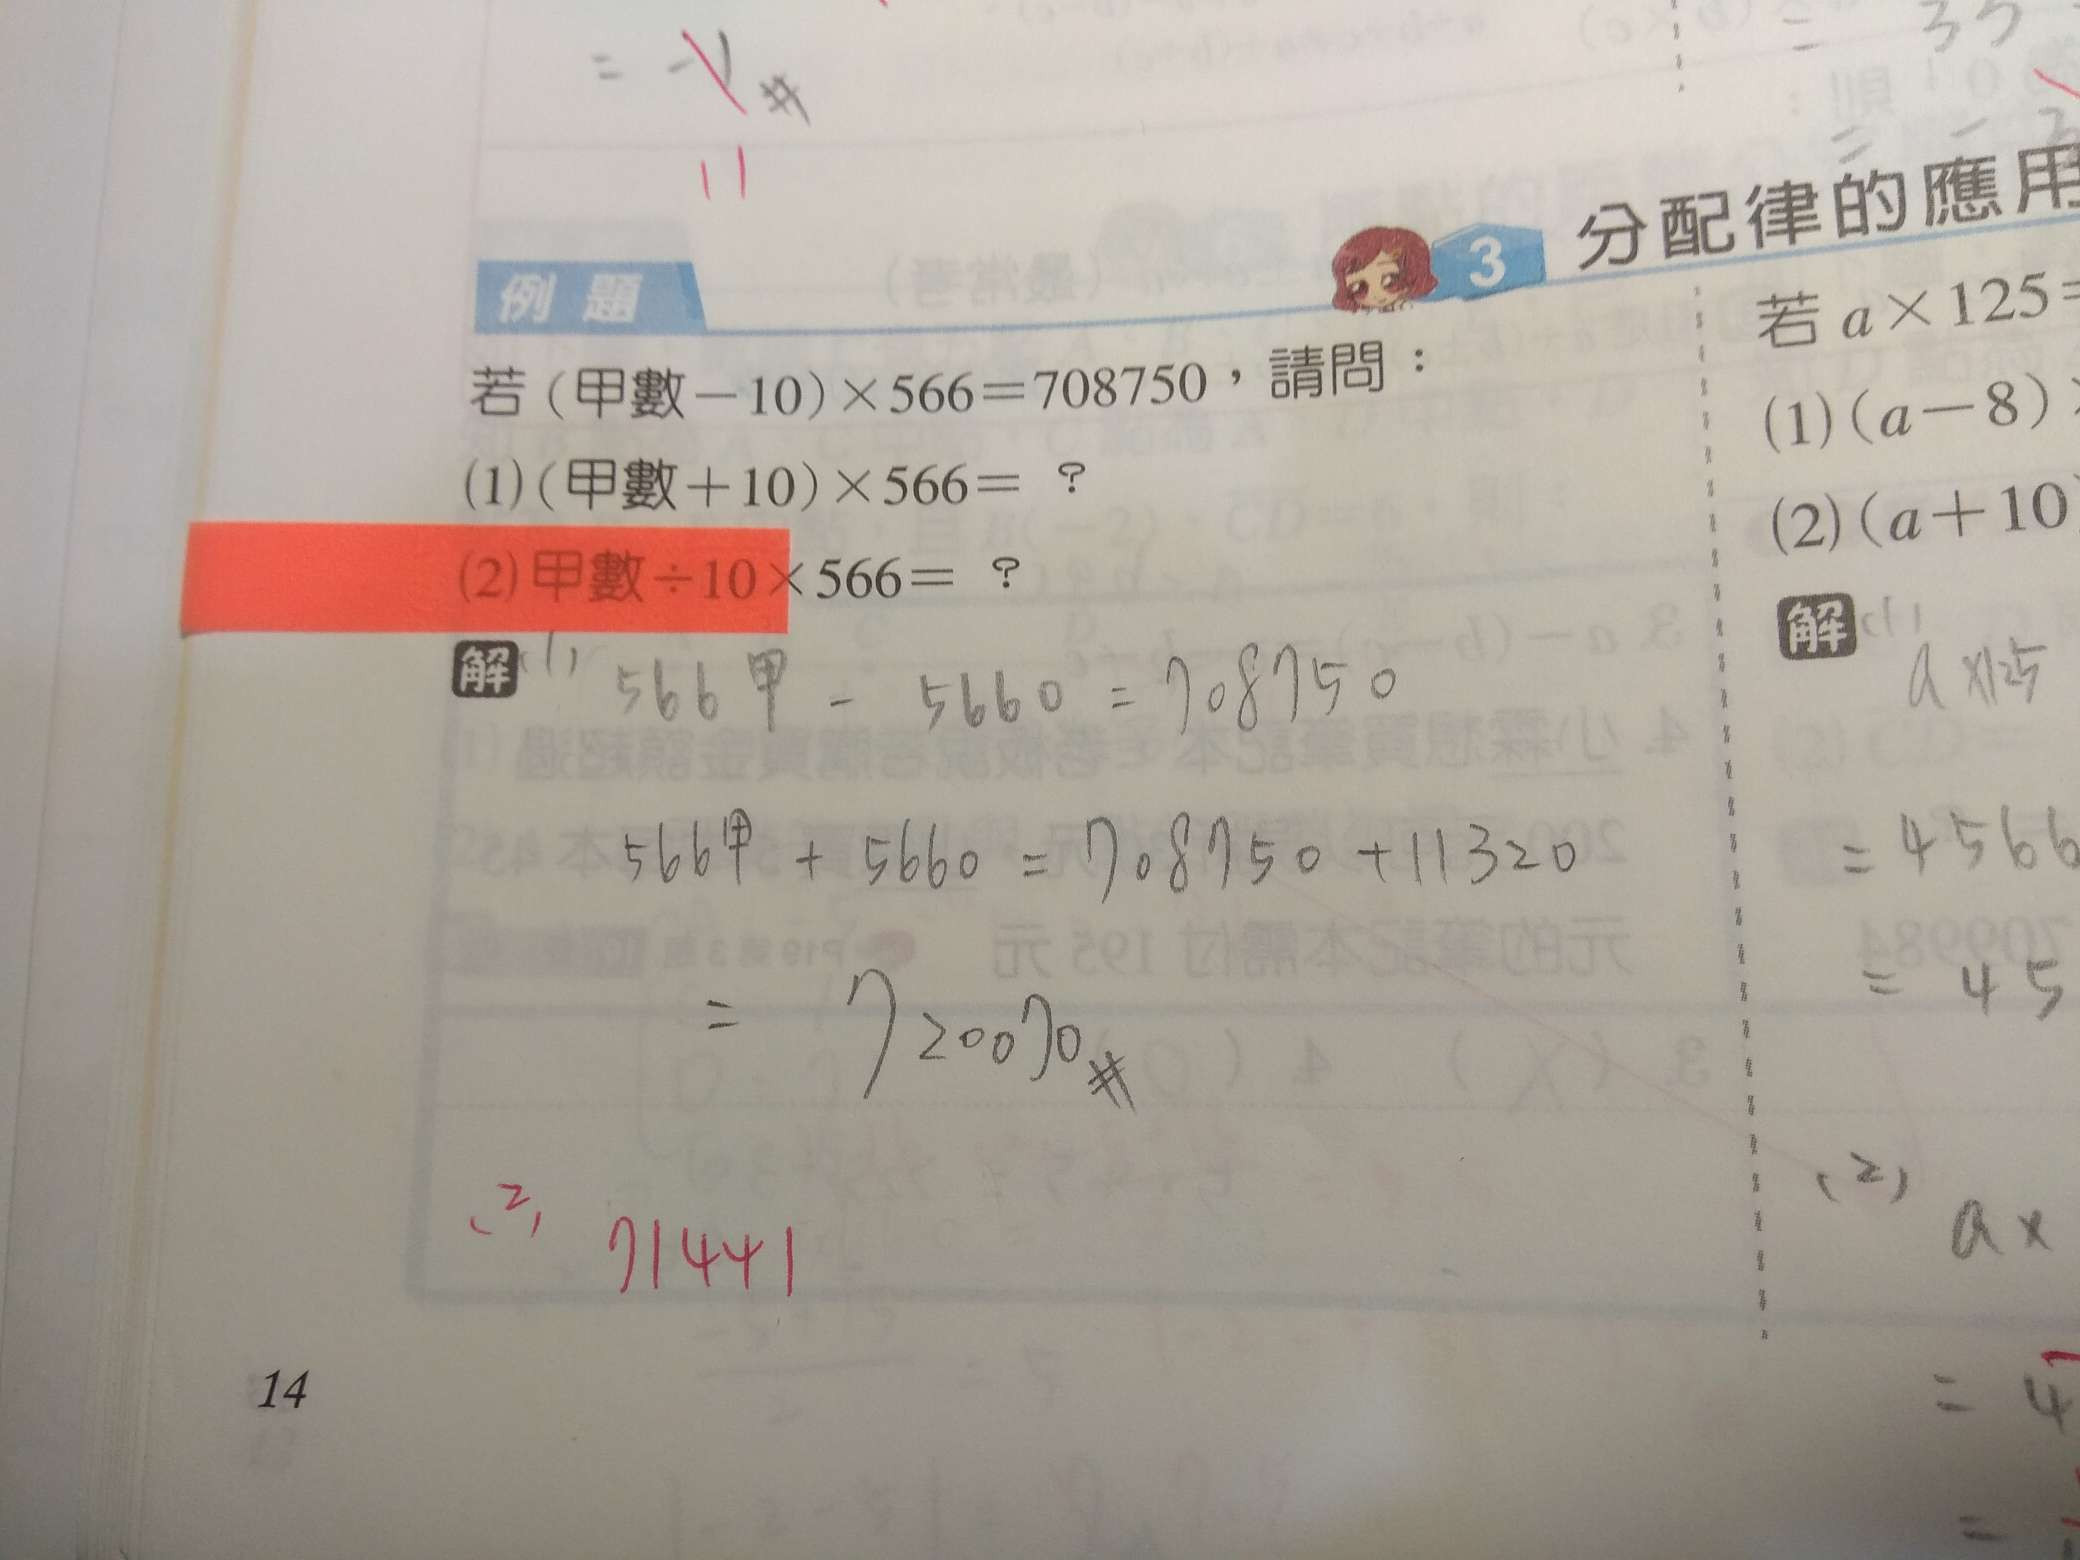 = -1 #
11
例題
3 分配律的應用
若(甲數−10)×566=708750，請問：
(1)(甲數+10)×566= ?
(2)甲數÷10×566= ?
解 (1) 566甲 - 5660 = 708750
566甲 + 5660 = 708750 + 11320
= 720070 #
(2) 71441
14
若 a×125=
(1)(a−8)
(2)(a+10)
解 (1)
a×125
= 4566
= 45
(2)
a×
= 4